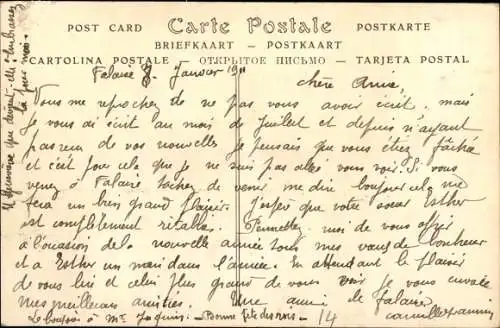 POST CARD Carte Postale POSTKARTE
BRIEFKAART — POSTKAART
CARTOLINA POSTALE — ОТКРЫТОЕ ПИСЬМО — TARJETA POSTAL
Falaise 7 Janvier 1911
chère Amie,
Vous me reprochez de ne pas vous avoir écrit, mais
je vous ai écrit au mois de Juillet et depuis n'ayant
pas reçu de vos nouvelles je pensais que vous étiez fâchée
et c'est pour cela que je ne suis pas allé vous voir. Si vous
venez à Falaise tachez de venir me dire bonjour cela me
fera un bien grand plaisir. J'espère que votre soeur Esther
est complètement rétablie. Permettez moi de vous offrir
à l'occasion de la nouvelle année tous mes vœux de bonheur
et à Esther un mari dans l'année. En attendant le plaisir
de vous lire et celui plus grand de vous voir je vous envoie
mes meilleures amitiés. Une amie de Falaise
le bonjour à Mr — Bonne fête des rois — 14